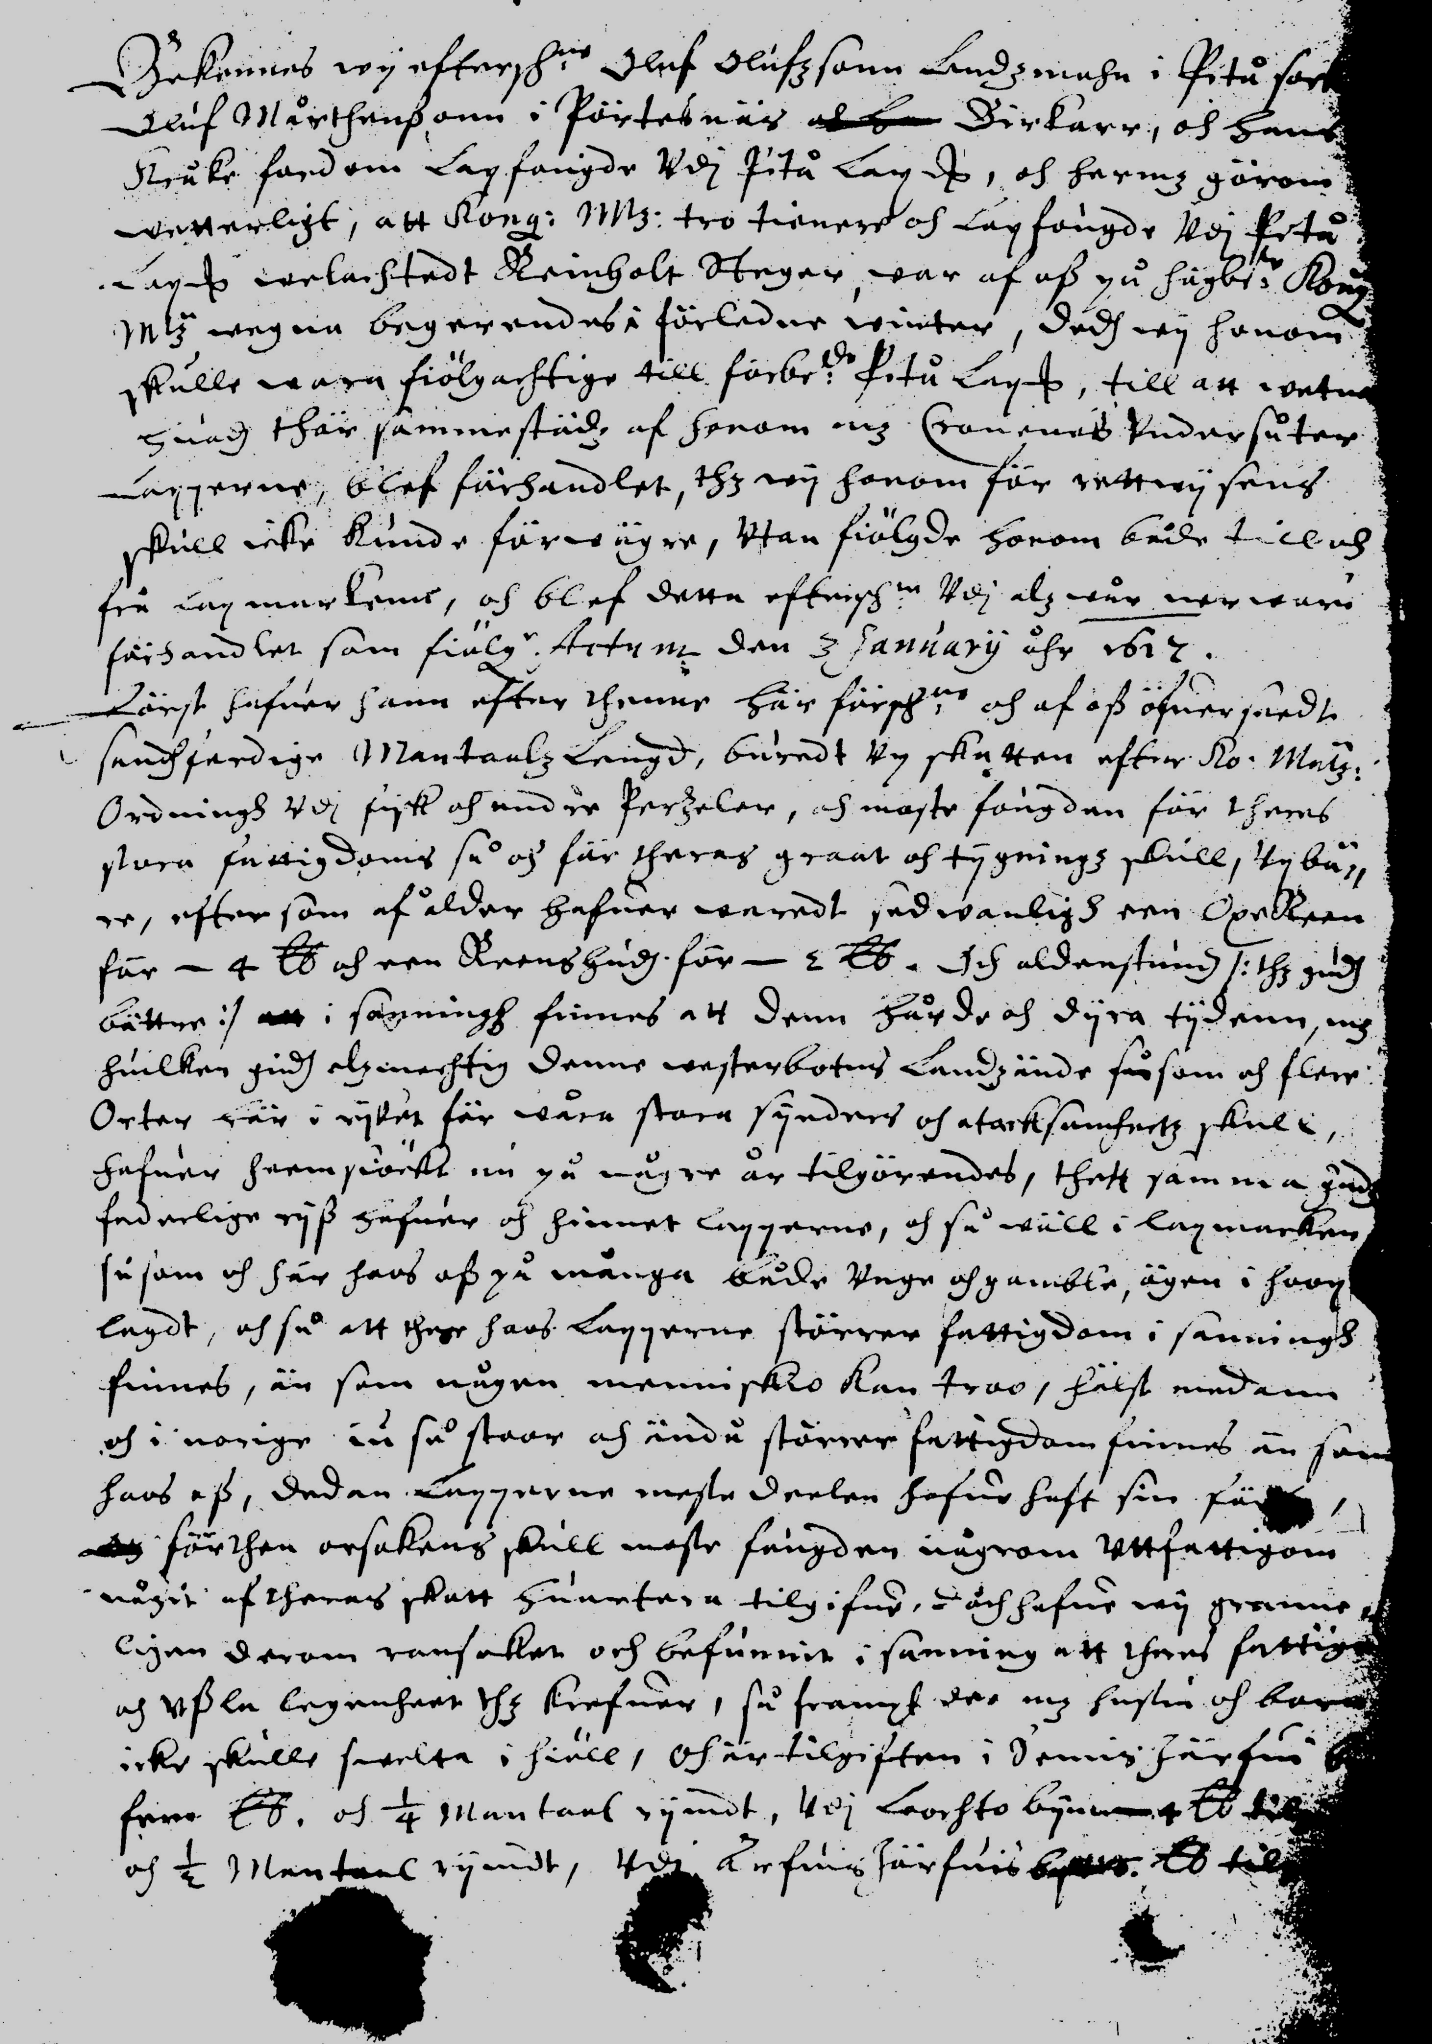 Bekennes wij effterschne Oluf Olufzsonn Landzmahn i Pitå sock
Oluf Mårthenßonn i Pörtesnäs Birkarr, och Hans
Kruke fordom Lapfougde Vdj Pitå Lapmk, och hermz görom
wetterligt, att Kong: Mtz: tro tienere och Lapfougde Vdj Pitå
Lapmk welachtedt Reinholt Steger, war af oß på högbte: Kong
Mtz wegna begerendes i förledne winter, dedh wij honom
skulle wara fiölgachtige till förbede: Pitå Lapmk, till att wetna
huadh thär sammestädz af honom mz Cronenes Vndersåter
Lapperne, blef förhandlet, thz wij honom för rettwijsens
skull icke kunde förwägre, Vtan fiölgde honom både till och
frå Lapmarkene, och blef detta effterschne Vdj alz wår nerware
förhandlet som fiölgr. Actum den 3 January åhr 1612.
Först hafuer hann efter thenne här förschne och af oß öfuersoedt
sandferdige Mantaalz Lengd, buredt Vp skatten efter Ko: Matz:
Ordningh Vdj fisk och andre Perzeler, och moste fougden för theres
stora fattigdoms så och för theras graat och tygningz skull, Vpbär
re, efter som af ålder hafuer waredt sedwanligh een OxeReen
för — 4 lb och een Reenshudh för — 2 lb. Och aldenstundh /: thz gudh
bättre :/ i sanningh finnes att denn hårde och dyra tijdenn, mz
huilken gudh alzmechtig denne westerbotns Landzände såsom och flere
Orter här i rijket för wåra stora synders och otacksamheetz skull,
hafuer heemsöckt nu på någre år tilgörendes, thett samma gudz
faderlige rijß hafuer och hinnet Lapperne, och så wäll i lapmarken
såsom och här hoos oß på många både Vnge och gamble, ägen i hoop
lagdt, och så att there hoos Lapperne större fattigdom i sanningh
finnes, än som någen menniskio kan troo, hälst medann
och i norige iu så stoor och ändå större fattigdom finnes än som
hoos oß, dedan Lapperne meste deelen hafue haft sin
förthen orsakens skull moste fougden någrom Vttfattigom
någit af theras skatt huartera tilgifue, och hafue wij granne
ligen derom ransaket och befunnit i sanning att theres fattige
och Vßla legenheet thz krefuer, så frampt dee mz hustru och barn
icke skulle swelta i hiäll, och är tilgiften i Semis Järfui
fyre lb. och 1/4 Mantaal rymdt, Vdj Lochto byn 4 lb
och 1/2 Mantaal rymdt, Vdj Arfuis Järfuis lb